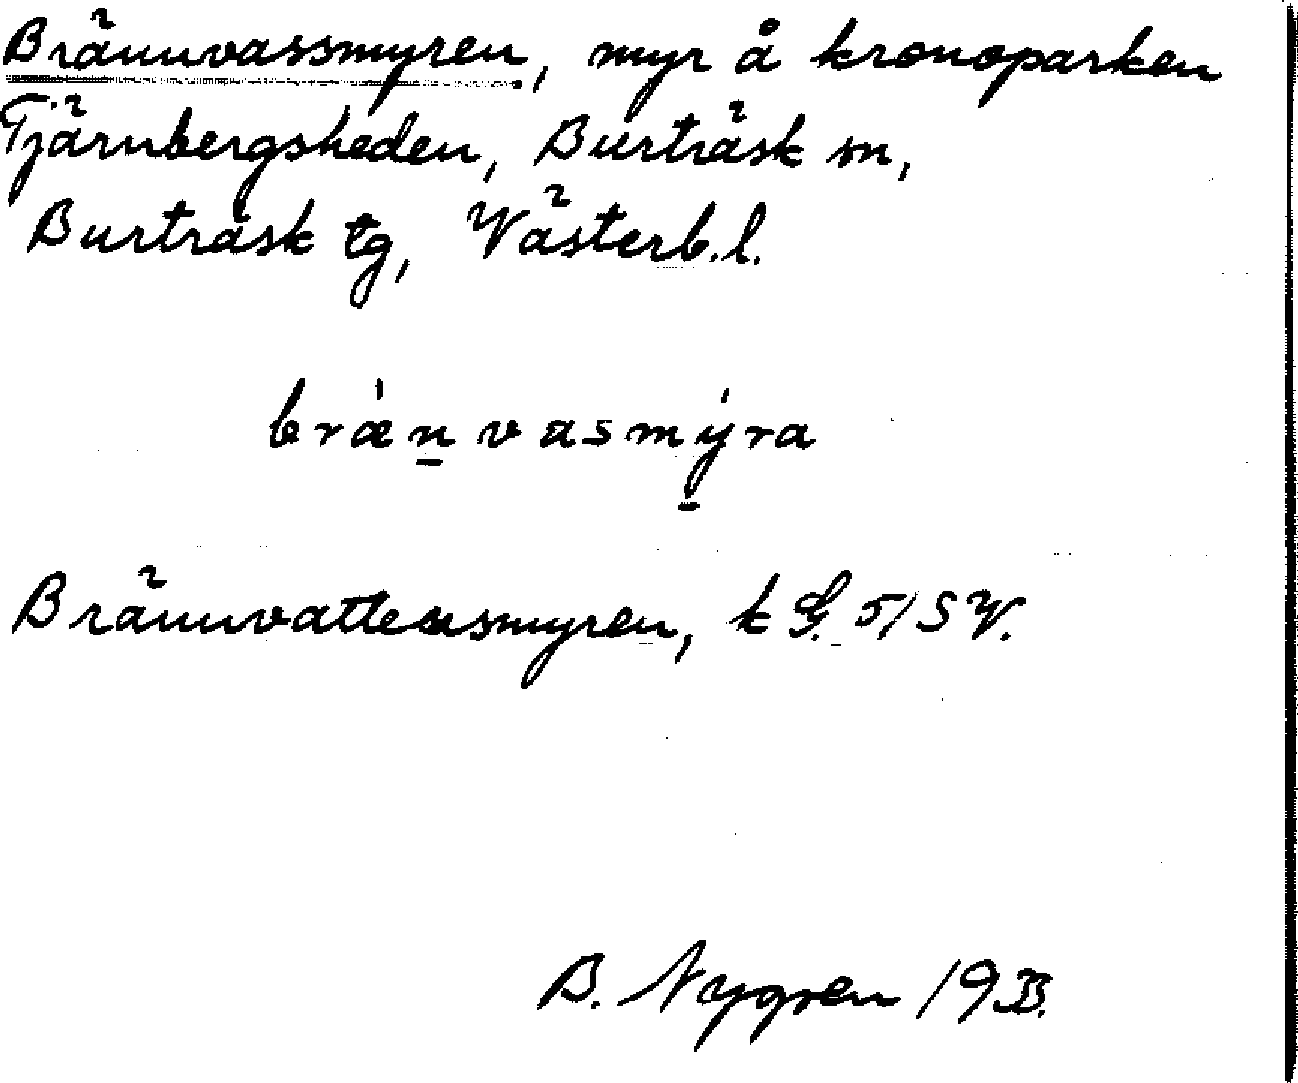 Brännvassmyren, myr å kronoparken
Tjärnbergsheden, Burträsk sn,
Burträsk tg, Västerb.l.
brǽn̲vasmý̲ra
Brännvattensmyren, k G. 5/SV.
B. Nygren 1933.